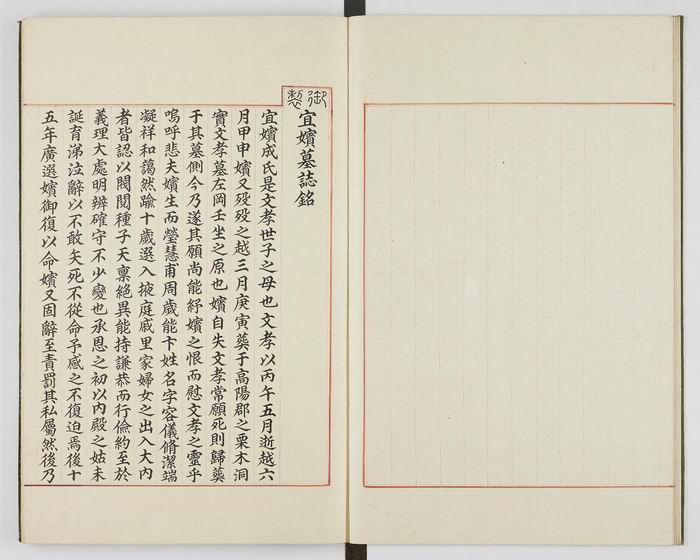 御製
宜嬪墓誌銘
宜嬪成氏是文孝世子之母也文孝以丙午五月逝越六
月甲申嬪又歿歿之越三月庚寅葬于高陽郡之栗木洞
實文孝墓左岡壬坐之原也嬪自失文孝常願死則歸葬
于其墓側今乃遂其願尚能紓嬪之恨而慰文孝之靈乎
嗚呼悲夫嬪生而瑩慧甫周歲能卞姓名字容儀脩潔端
凝祥和藹然踰十歲選入掖庭戚里家婦女之出入大內
者皆認以閥閱種子天稟絕異能持謙恭而行儉約至於
義理大處明辨確守不少變也承恩之初以內殿之姑未
誕育涕泣辭以不敢矢死不從命予感之不復迫焉後十
五年廣選嬪御復以命嬪又固辭至責罰其私屬然後乃